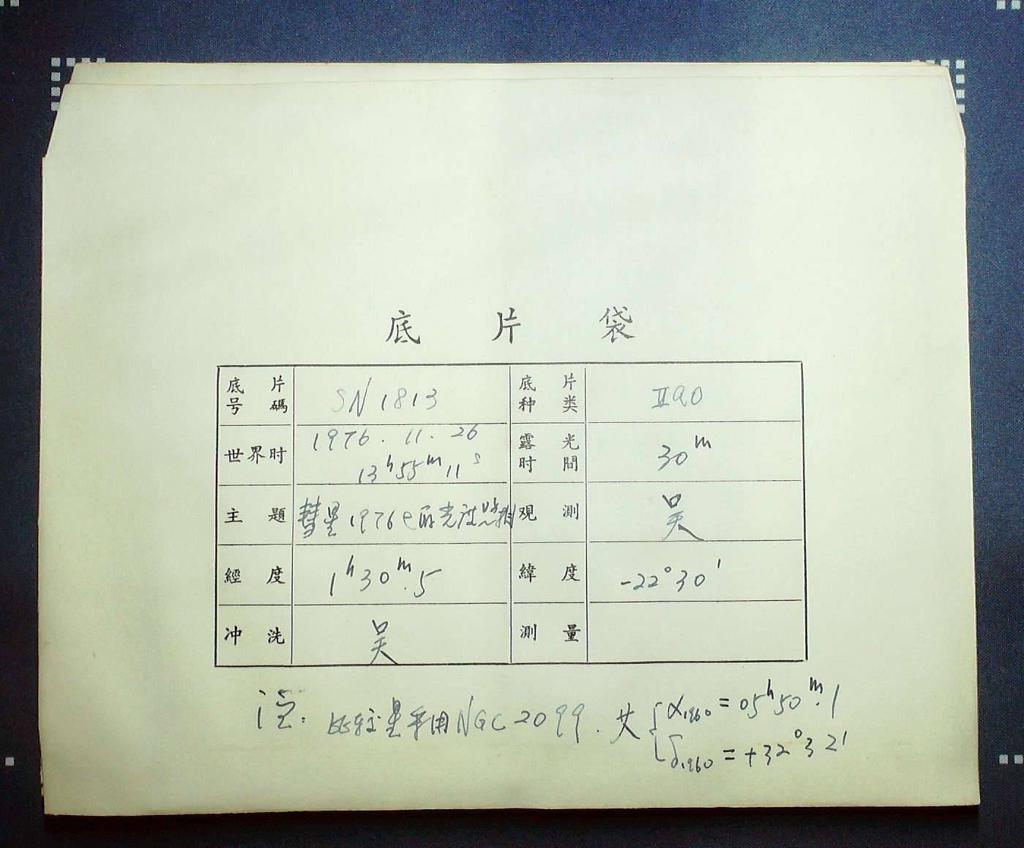 底 片 袋
底 片
号 碼
SN 1813
底 片
种 类
IIaO
世界时
1976. 11. 26
13ʰ55ᵐ11ˢ
露 光
时 間
30ᵐ
主 題
彗星1976e的光度
观 測
吴
經 度
1ʰ30ᵐ.5
緯 度
-22°30′
冲 洗
吴
測 量
注. 比较星采用NGC 2099. 其 { α₁₉₆₀ = 05ʰ50ᵐ.1
δ₁₉₆₀ = +32°32′